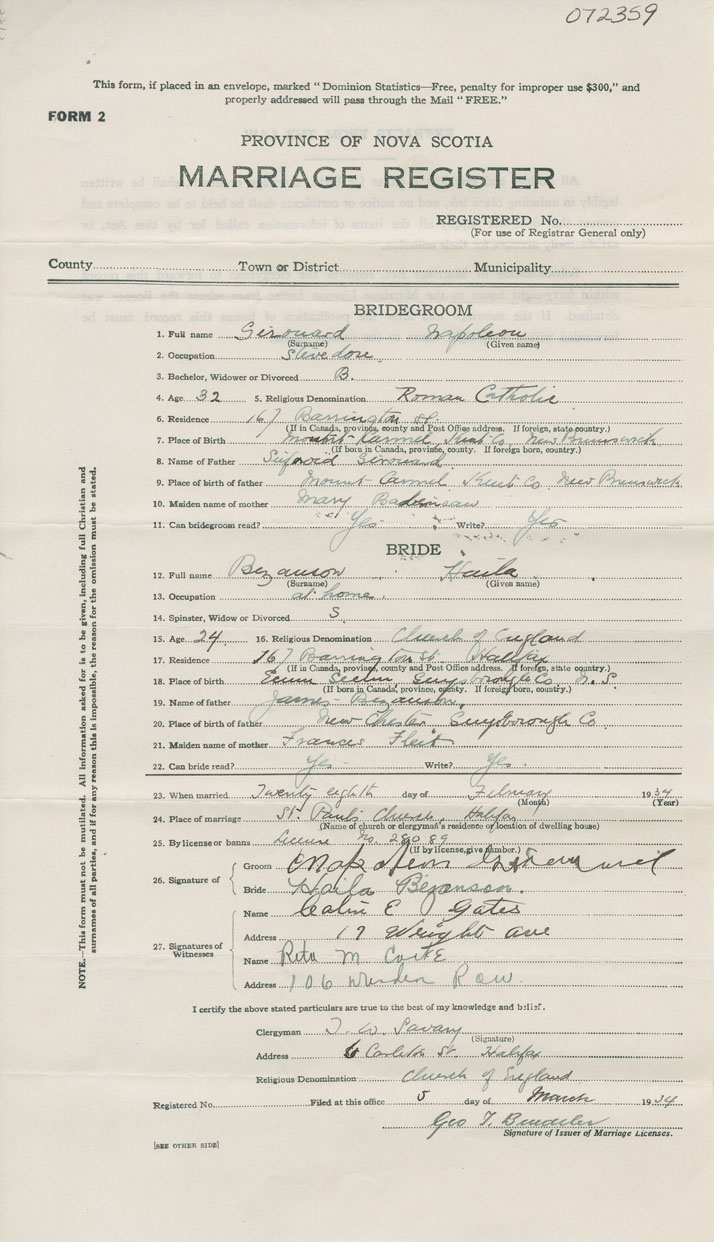 072359
This form, if placed in an envelope, marked "Dominion Statistics—Free, penalty for improper use $300," and
properly addressed will pass through the Mail "FREE."
FORM 2
PROVINCE OF NOVA SCOTIA
MARRIAGE REGISTER
REGISTERED No.
(For use of Registrar General only)
County Town or District Municipality
BRIDEGROOM
1. Full name Girouard Napoleon
(Surname) (Given name)
2. Occupation Stevedore
3. Bachelor, Widower or Divorced B.
4. Age 32 5. Religious Denomination Roman Catholic
6. Residence 167 Barrington St.
(If in Canada, province, county and Post Office address. If foreign, state country.)
7. Place of Birth Mount Carmel Kent Co New Brunswick
(If born in Canada, province, county. If foreign born, country.)
8. Name of Father Girouard
9. Place of birth of father Mount Carmel Kent Co New Brunswick
10. Maiden name of mother Mary
11. Can bridegroom read? Yes Write? Yes
BRIDE
12. Full name Bezanson Haila
(Surname) (Given name)
13. Occupation at home
14. Spinster, Widow or Divorced S
15. Age 24 16. Religious Denomination Church of England
17. Residence 167 Barrington St Halifax
(If in Canada, province, county and Post Office address. If foreign, state country.)
18. Place of birth Ecum Secum Guysborough Co N.S
(If born in Canada, province, county. If foreign born, country.)
19. Name of father James Bezanson
20. Place of birth of father New Chester Guysborough Co
21. Maiden name of mother Frances Fleit
22. Can bride read? Yes Write? Yes
23. When married Twenty eighth day of February 1934
(Month) (Year)
24. Place of marriage St. Paul's Church, Halifax
(Name of church or clergyman's residence or location of dwelling house)
25. By license or banns License No. 28089
(If by license, give number.)
26. Signature of
Groom Napoleon
Bride Haila Bezanson.
27. Signatures of
Witnesses
Name E Gates
Address 17 Wright Ave
Name Rita M
Address 106 Row.
I certify the above stated particulars are true to the best of my knowledge and belief.
Clergyman T. W. Savary
(Signature)
Address 6 Carleton St. Halifax
Religious Denomination Church of England
Registered No. Filed at this office 5 day of March 1934
Geo T.
Signature of Issuer of Marriage Licenses.
[SEE OTHER SIDE]
NOTE.—This form must not be mutilated. All information asked for is to be given, including full Christian and
surnames of all parties, and if for any reason this is impossible, the reason for the omission must be stated.